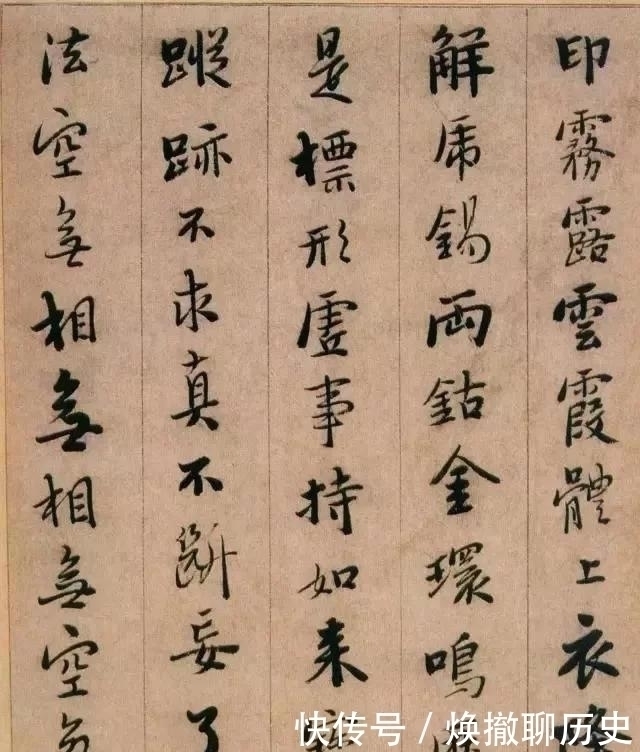 印霧露雲霞體上衣
解虎錫兩鈷金環鳴
是標形虛事持如来
蹤跡不求真不斷妄了
法空無相無相無空
快传号 / 焕撤聊历史